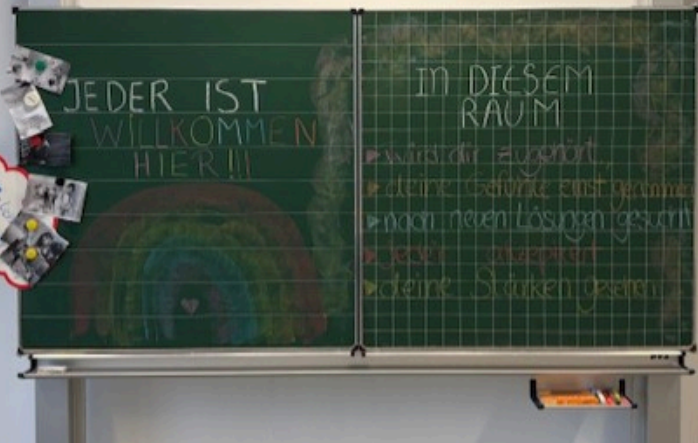 JEDER IST
WILLKOMMEN
HIER!!!
IN DIESEM
RAUM
wirst dir zugehört,
deine Gefühle ernst genommen
nach neuen Lösungen gesucht
jede/r akzeptiert
deine Stärken gesehen